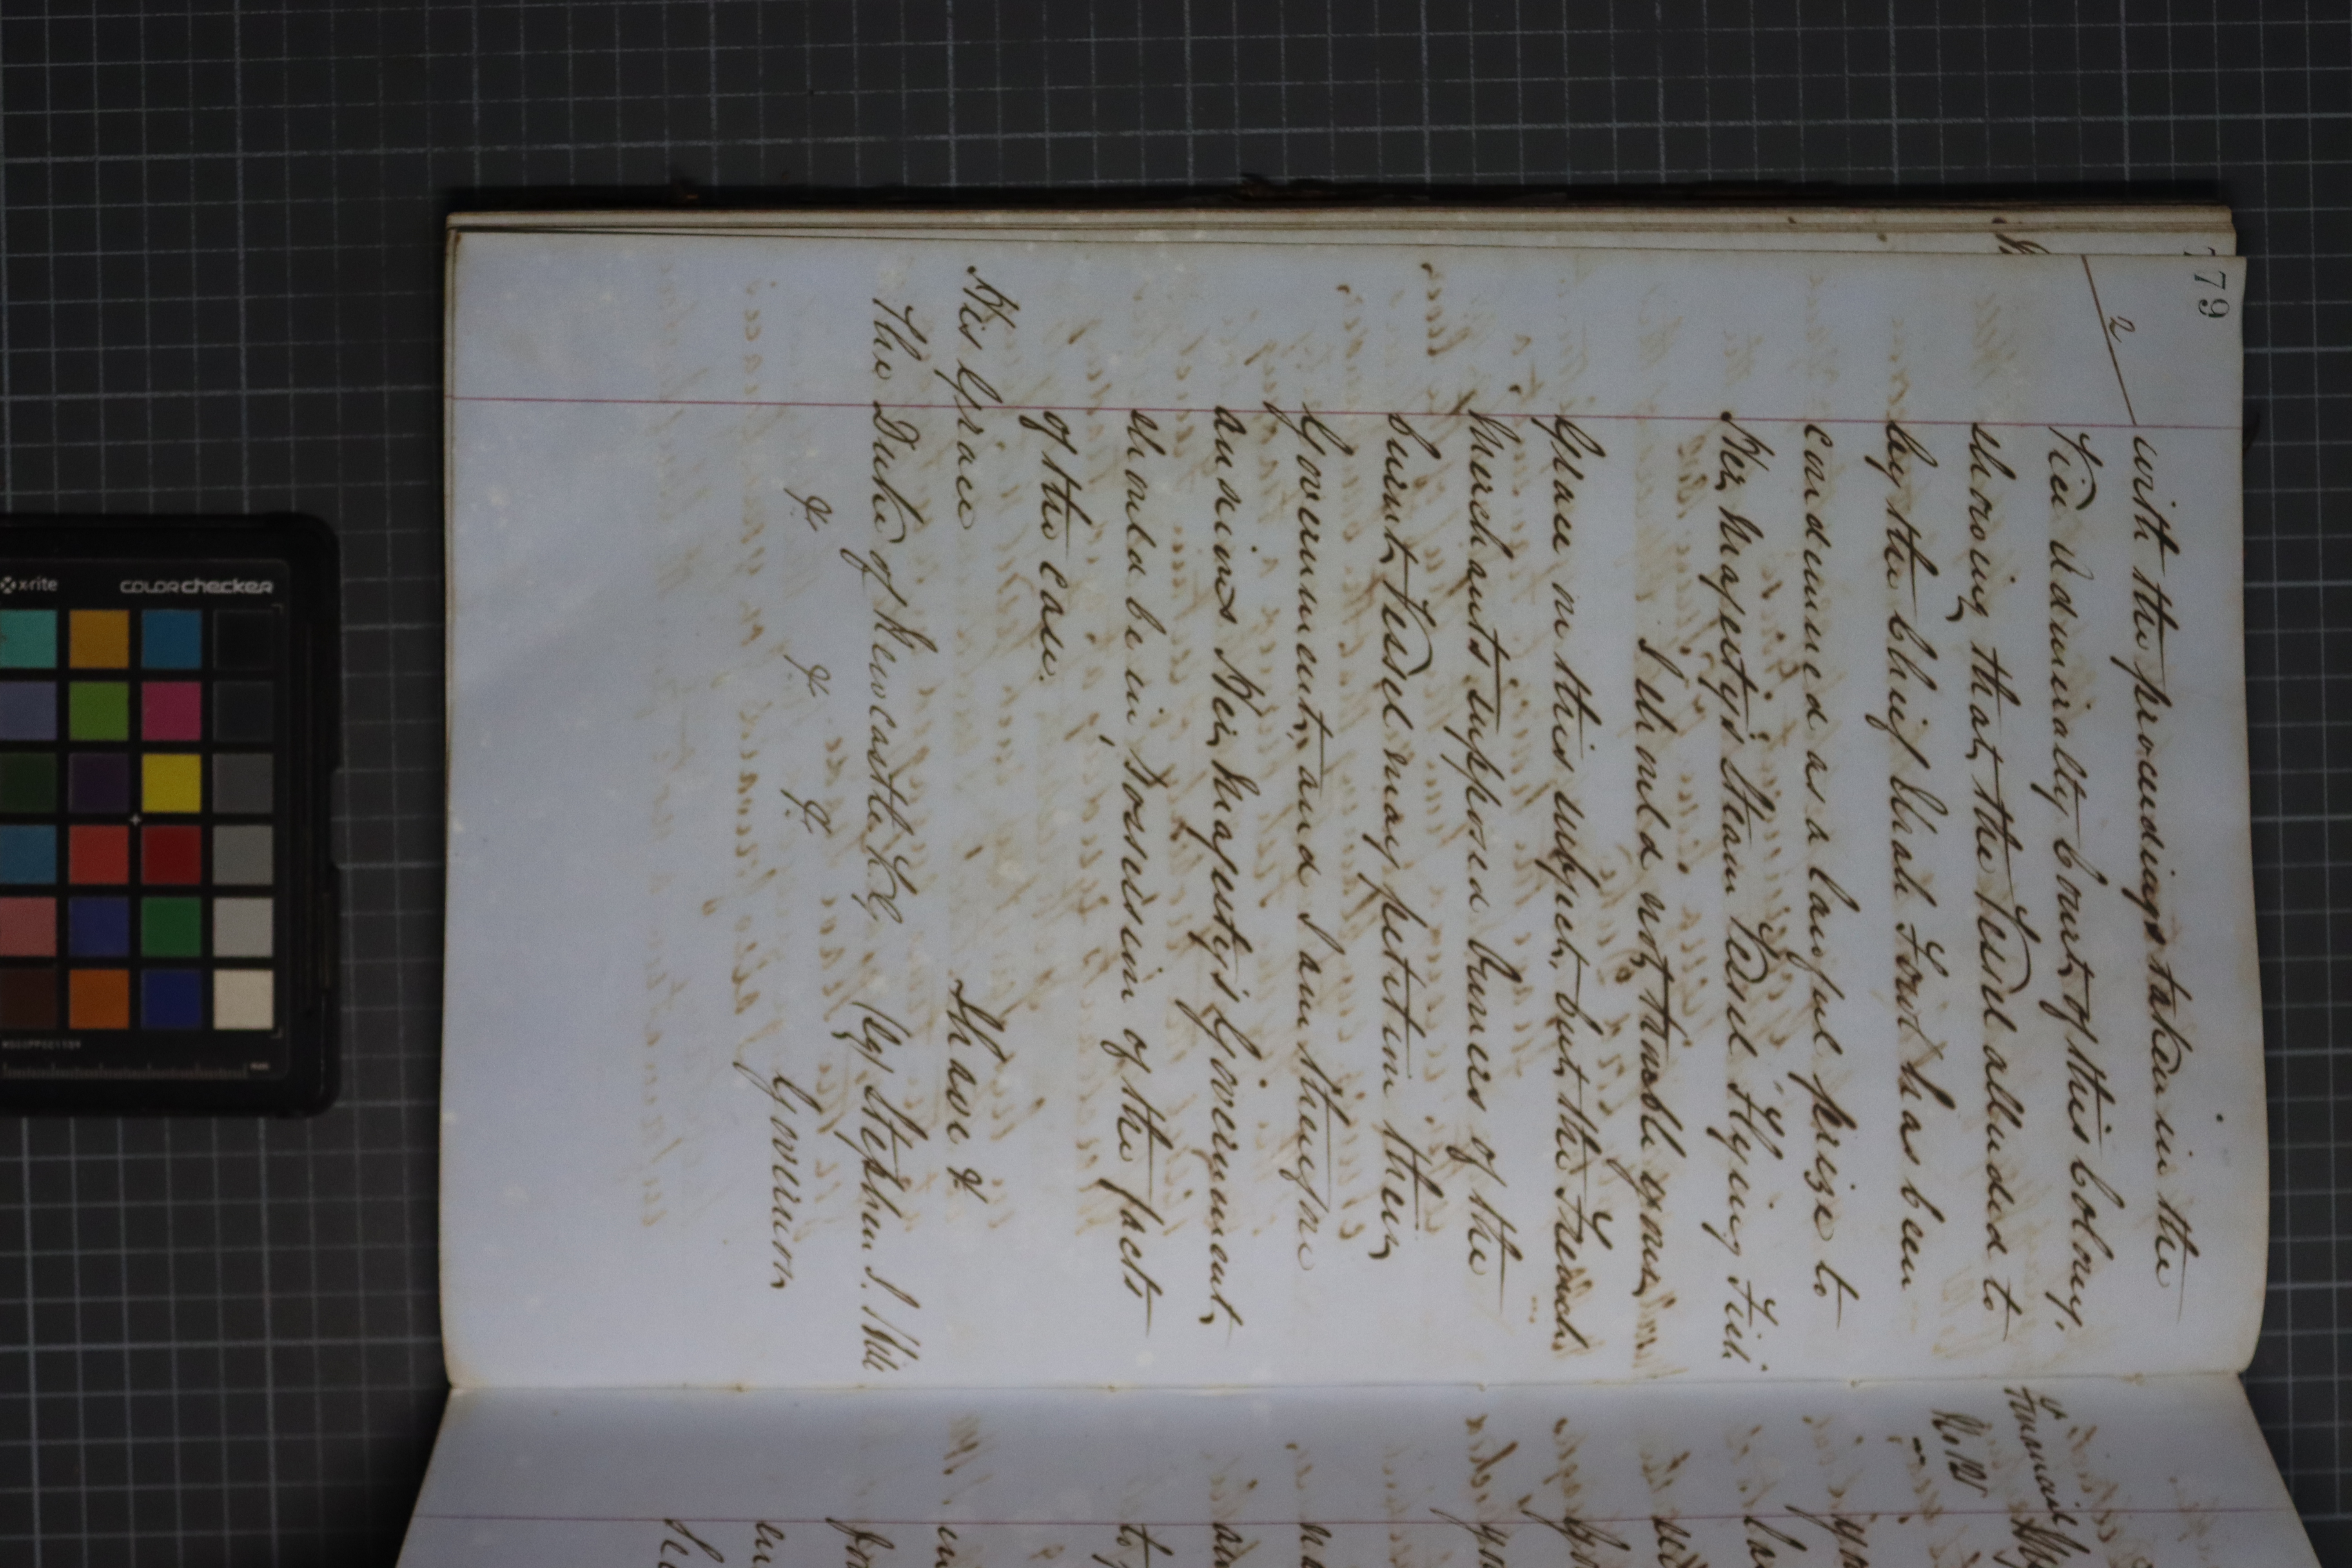 179
2
with the proceedings taken in the
Vice Admiralty Court of this Colony,
showing that the Vessel alluded to
by the Chief Black Fowl has been
condemned as a lawful prize to
Her Majesty's Steam Vessel Flying Fish
I should not trouble your
Grace on this subject, but the French
Merchants supposed Owners of the
burnt Vessel may petition their
Government, and I am therefore
anxious Her Majesty's Government
should be in possession of the facts
of the case.
His Grace
I have &
The Duke of Newcastle K.G.
(Sg) Stephen J. Hill
& & &
Governor